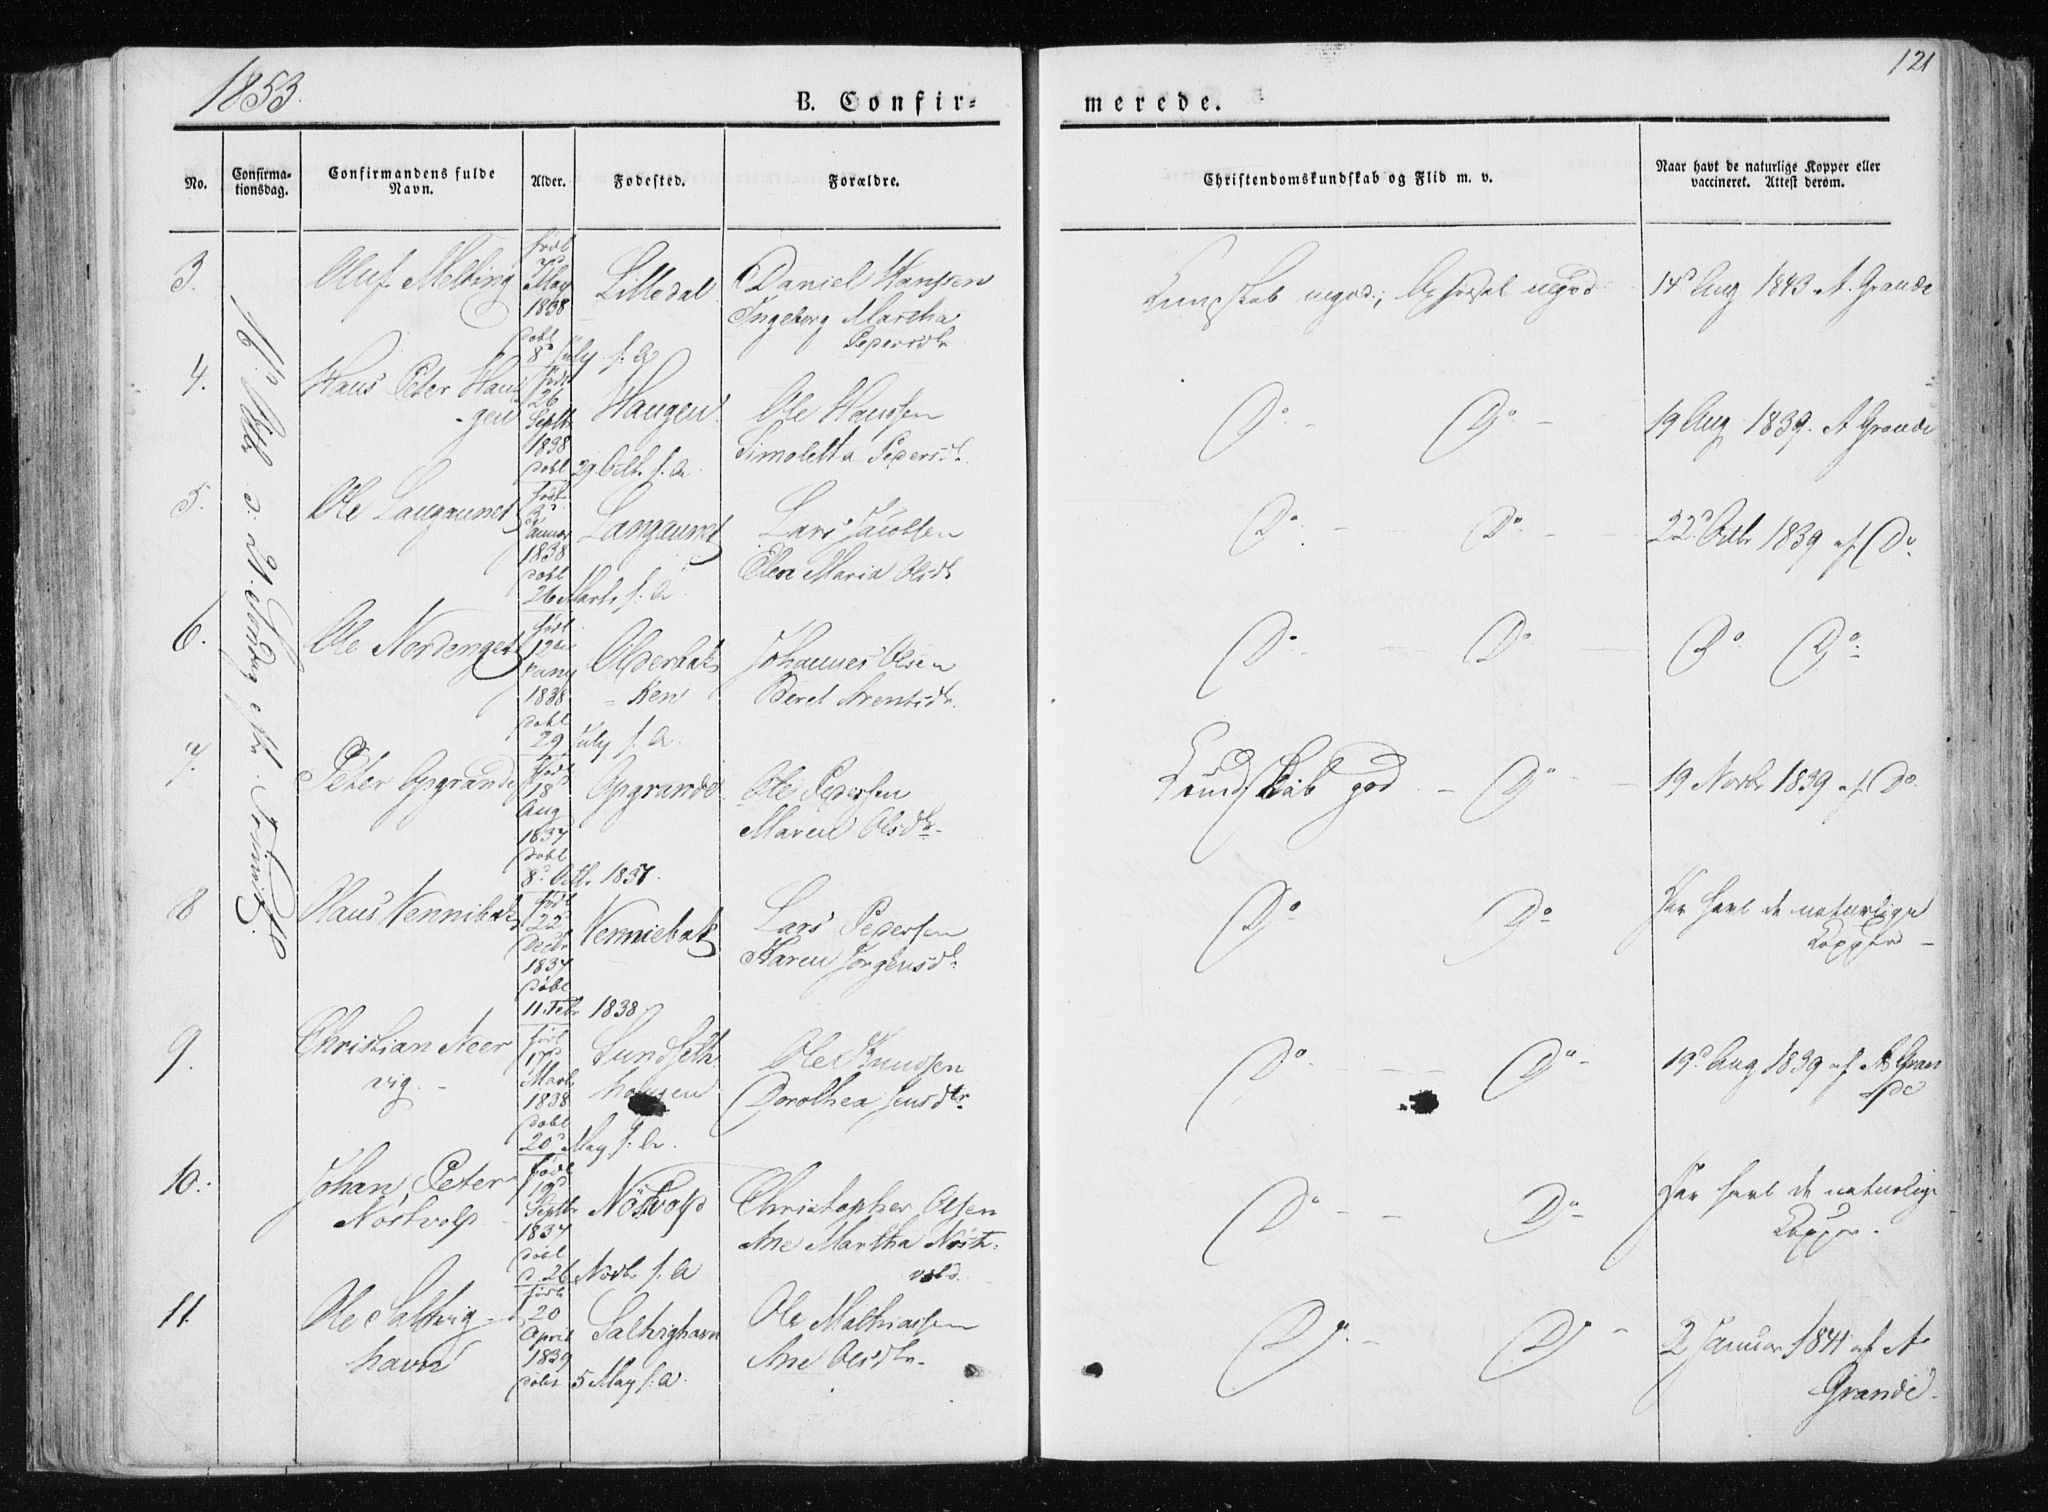 1853.
B. Confir=
merede.
121
No.
Confirma-
tionsdag.
Confirmandens fulde
Navn.
Alder.
Fødested.
Forældre.
Christendomskundskab og Flid m. v.
Naar havt de naturlige Kopper eller
vaccineret. Attest derom.
3.
Oluf Melting
født
May
1838
døbt
8d July s. A
Lilledal
Daniel Hanssen
Ingeborg Martha
Pedersdtr
Kundskab mgod; Opførsel mgod
14d Aug 1843 A. Grande
4.
Hans Peter Hau
gen
født
26
Septbr
1838
døbt 29 Octb. s. A
Haugen
Ole Hanssen
Simoletta Pedersdtr
Do - Do -
19 Aug 1839. A Grande
5.
Ole Langaunet
født
Januar
1838
døbt
26 Marts s. A
Langaunet
Lars Jacobsen
Elen Maria Olsdtr
Do - Do -
22d Octb 1839 af Do
6.
Ole Nordenget
født
1838
døbt
29 July s. A.
Olderbak
= ken
Johannes Olsen
Beret Arentsdtr.
Do - Do -
Do Do
7.
Peter Opgrande
født
18d
Aug
1837
døbt
8d Octb. 1837.
Opgrande
Ole Pedersen
Maren Olsdtr
Kundskab god - Do -
19 Novbr 1839 af Do
8
Hans Vennibak
født
22d
Decbr
1837
døbt
11 Febr 1838
Venniebak
Lars Pedersen
Karen Jørgensdtr
Do Do
Har havt de naturlige
Kopper -
9.
Christian Neer
vig. -
født
Marts
1838
døbt
20d May s. A.
Sundseth
Ole Knudsen
Dorothea Jensdtr
Do - - - Do -
19d Aug 1839 af A Gran
de
10.
Johan Peter
Nostvold
født
19d
Septbr
1837
døbt
d. 26 Novbr s. A
Nøstvold
Christopher Olsen
Ane Martha Nøst=
vold.
Do - - Do
Har havt de naturlige
Kopper.
11.
Ole Saltvig
havn
født
20
April
1839
døbt 5 May s. A.
Saltvighavn
Ole Mathiassen
Ane Olsdtr
Do - Do -
2 Januar 1841 af A
Grande.
16de Octbr d: 21 Søndag efter Trinit.